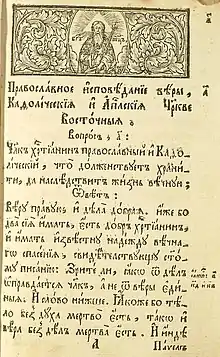 Православное и҆сповѣданїе вѣры,
Каѳолическїѧ и҆ Апⷭ҇лскїѧ Цр҃кве
Восточныѧ,
Вопросъ, а҃:
Чл҃къ хрⷭ҇тїанинъ православный и҆ Каѳо
лическїй, что долженствуетъ храни
ти, да наслѣдствитъ жизнь вѣчную;
Ѿвѣтъ:
Вѣру правую, и҆ дѣла добраѧ. и҆же бо
два сїѧ и҆мать, є҆сть добръ хрⷭ҇тїанинъ,
и҆ и҆мать и҆звѣстну надежду вѣчна
гѡ спасенїѧ, свидѣтелствующу сто
му писанїю: Зрите ли, ꙗкѡ ѿ дѣлъ
ѡправдаетсѧ чл҃къ, а не ѿ вѣры є҆ди
ныѧ. И҆ мало ниже: Ꙗкоже бо тѣ
ло без̾ духа мертво є҆сть, такѡ и҆
вѣра без̾ дѣлъ мертва є҆сть. И҆ и҆ндѣ
А
Павелъ